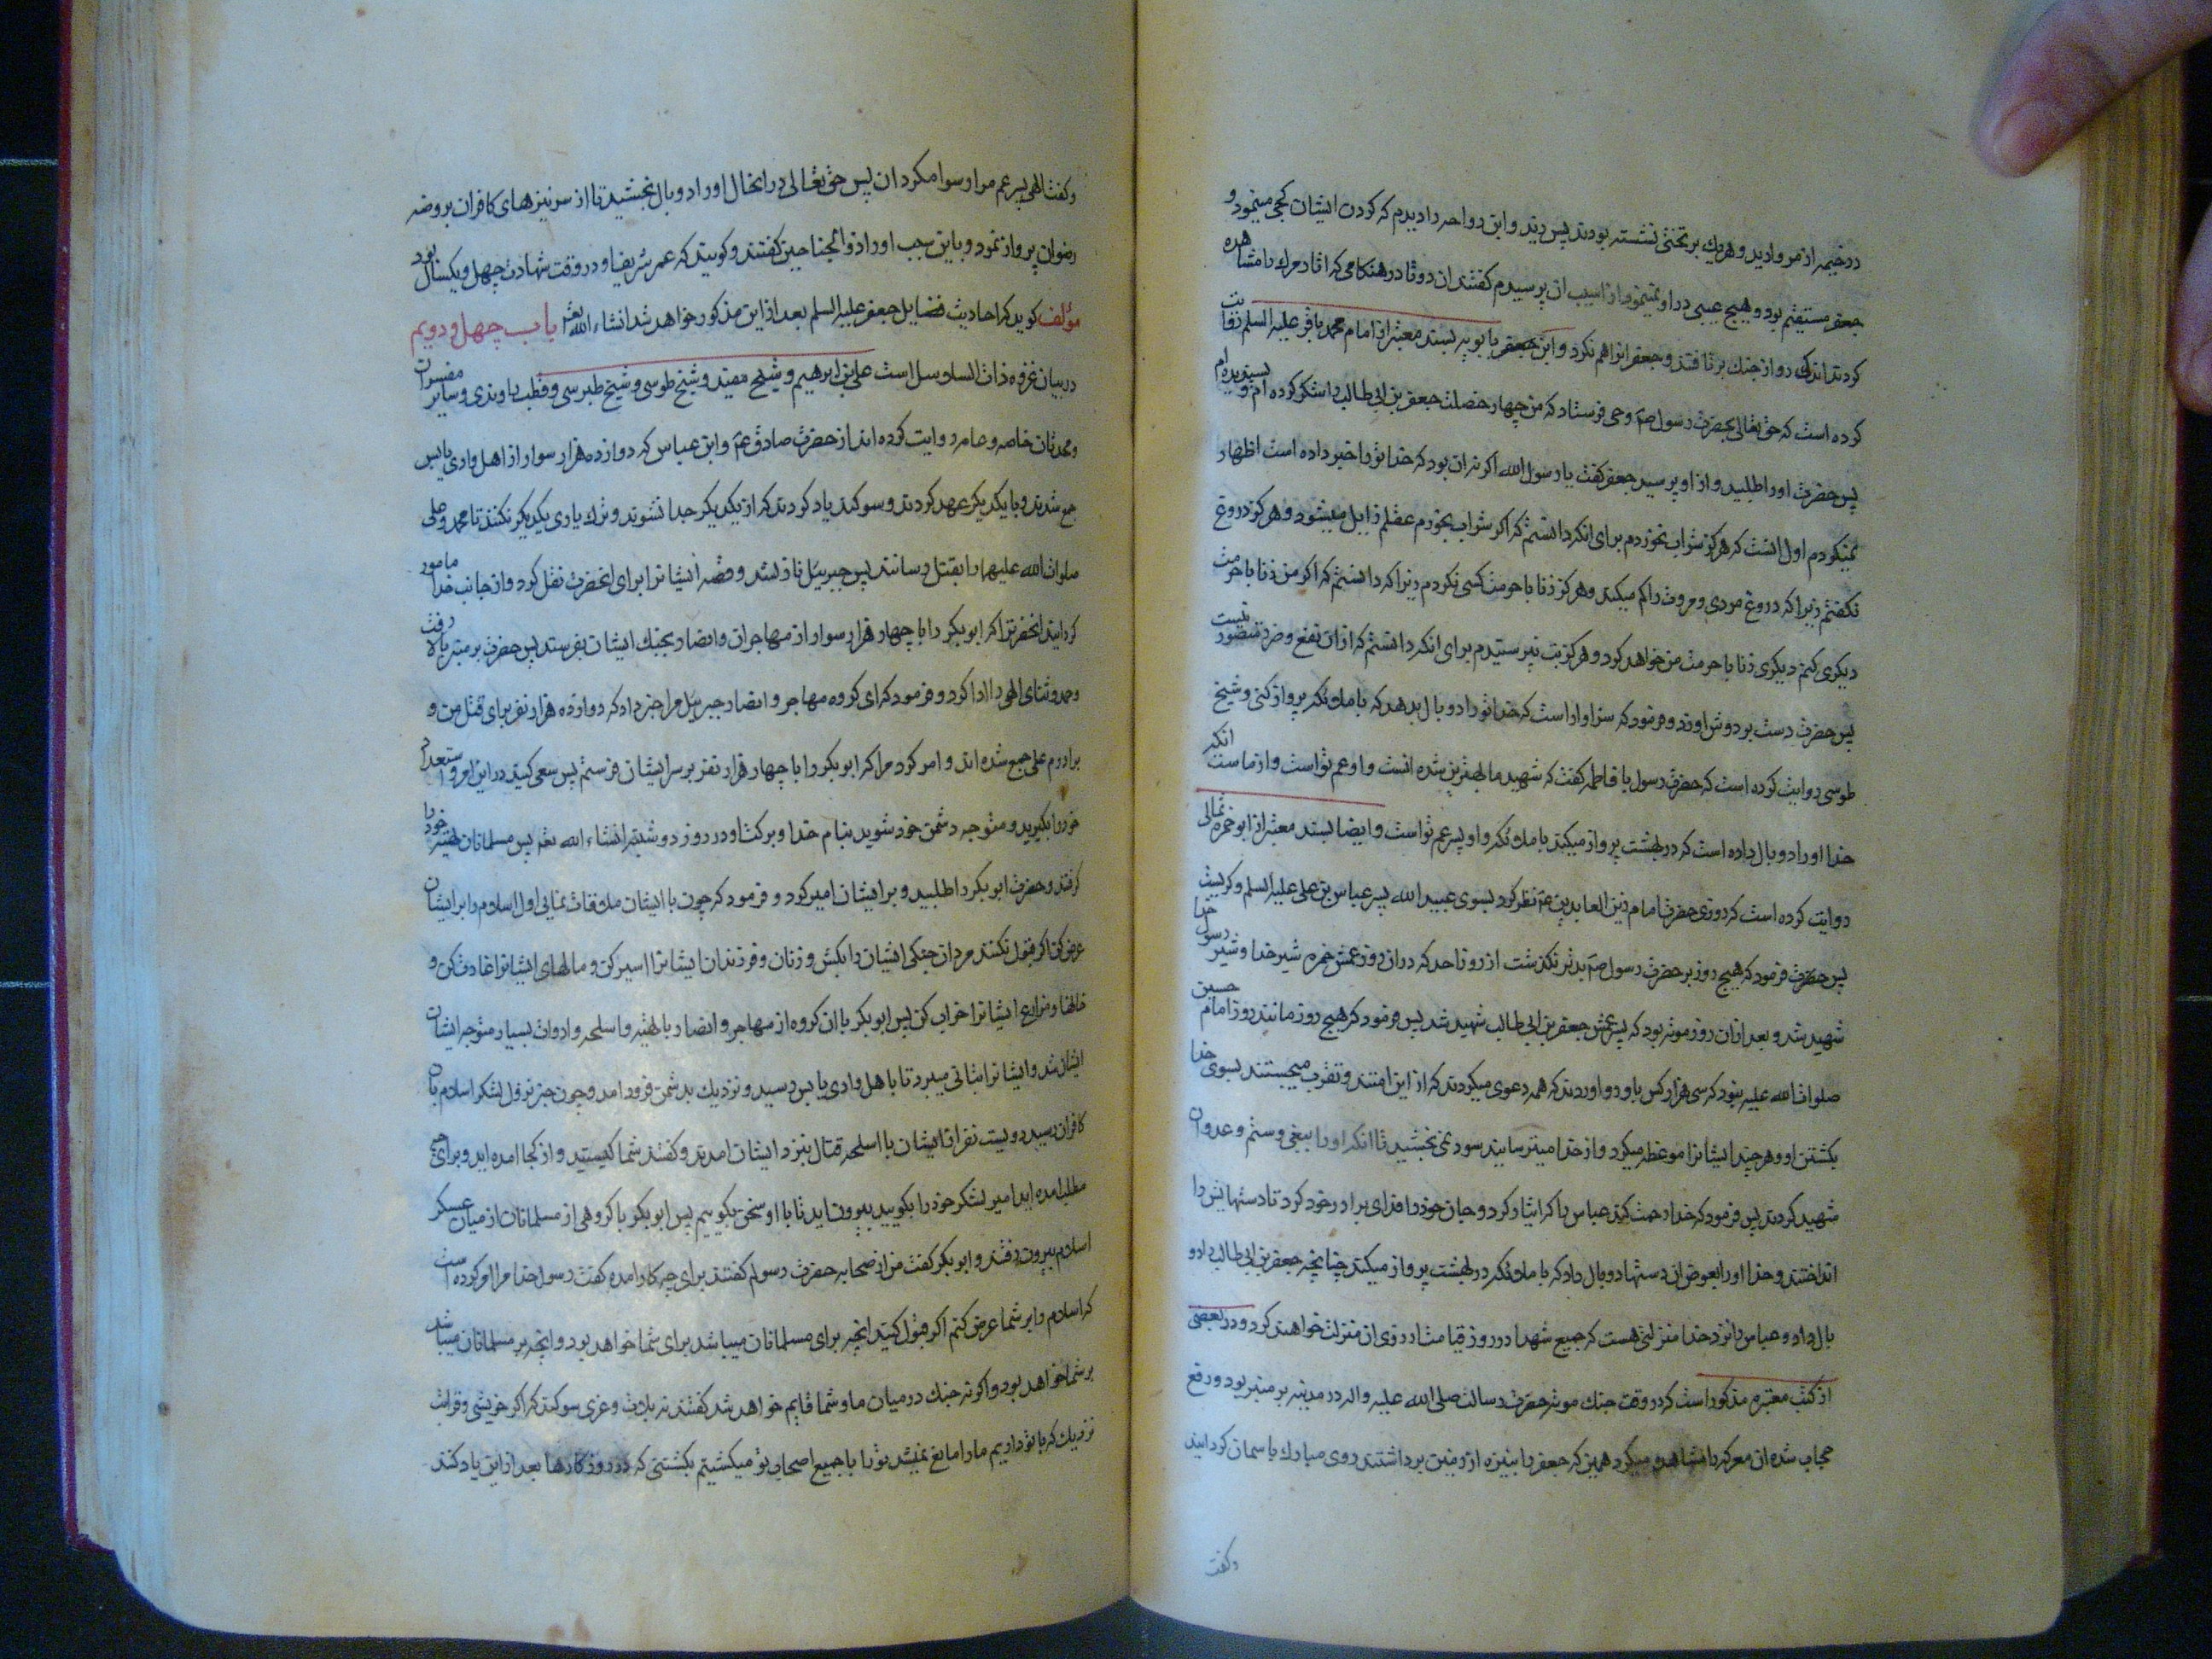 در خیمه از مروارید و هریك بر تختی نشسته بودند پس زید و ابن رواحه را دیدم که گردن ایشان کجی مینمود و
جعفر مستقیم بود و هیچ عیبی در او نمینمود از سبب ان پرسیدم گفتند ان دو تا در هنکامی که اثار مرك را مشاهده
کردند اندك رو از جنك برتافتند و جعفر انرا هم نکرد و ابن بابویه بسند معتبر از امام محمد باقر علیه السلم روایت
کرده است که حق تعالی بحضرت رسول ص وحی فرستاد که من چهار خصلت جعفر بن ابی طالب را شکر کرده ام و پسندیده ام
پس حضرت اورا طلبید و از او پرسید جعفر کفت یا رسول الله اکر نه ان بود که خدا تو را خبر داده است اظهار
نمیکردم اول انست که هرکز شراب نخوردم برای انکه دانستم که اکر شراب بخورم عقلم زایل میشود و هرکز دروغ
نکفتم زیرا که دروغ مردی و مروت را کم میکند و هرکز زنا با حرمت کسی نکردم زیرا که دانستم که اکر من زنا با حرمت
دیکری کنم دیکری زنا با حرمت من خواهد کرد و هرکز بت نپرستیدم برای انکه دانستم که ازان نفع و ضرر متصور نیست
پس حضرت دست بر دوش او زد و فرمود که سزاوار است که خدا تو را دو بال بدهد که با ملائکه پرواز کنی و شیخ
طوسی روایت کرده است که حضرت رسول با فاطمه کفت که شهید ما بهترین شهیدانست و او عم تو است و از ماست انکه
خدا اورا دو بال داده است که در بهشت پرواز میکند با ملائکه و او پسر عم تو است و ایضا بسند معتبر از ابو حمزه ثمالی
روایت کرده است که روزی حضرت امام زین العابدین ع نظر کرد بسوی عبید الله پسر عباس بن علی علیه السلم و کریست
پس حضرت فرمود که هیچ روز بر حضرت رسول ص بدتر نکذشت از روز احد که دران روز عمش حمزه شیر خدا و شیر رسول خدا
شهید شد و بعد ازان روز موته بود که پسر عمش جعفر بن ابی طالب شهید شد پس فرمود که هیچ روز مانند روز امام حسین
صلوات الله علیه نبود که سی هزار کس باو رو اوردند که همه دعوی میکردند که از این امتند و تقرب میجستند بسوی خدا
بکشتن او و هرچند ایشانرا موعظه میکرد و از خدا میترسانید سود نمی بخشید تا انکه اورا ببغی و ستم و عدوان
شهید کردند پس فرمود که خدا رحمت کند عباس را که ایثار کرد و جان خود را فدای برادر خود کرد تا دستهایش را
انداختند و خدا اورا بعوض ان دستها دو بال داد که با ملائکه در بهشت پرواز میکند چنانچه جعفر بن ابی طالب را دو
بال داد و عباس را نزد خدا منزلتی هست که جمیع شهدا در روز قیامت ارزوی ان منزلت خواهند کرد و در بعضی
از کتب معتبره مذکور است که در وقت جنك موته حضرت رسالت صلی الله علیه واله در مدینه بر منبر بود و رفع
حجاب شده ان معرکه را مشاهده میکرد همین که جعفر را بنیزه از زمین برداشتند روی مبارك باسمان کردانید
وکفت
وکفت الهی پسر عم مرا رسوا مکردان پس حق تعالی در انحال اورا دو بال بخشید تا از سر نیزهای کافران بروضه
رضوان پرواز نمود و باین سبب اورا ذو الجناحین کفتند و کویند که عمر شریف او در وقت شهادت چهل و یکسال بود
مؤلف کوید که احادیث فضایل جعفر علیه السلم بعد از این مذکور خواهد شد انشاء الله تعالی باب چهل و دویم
در بیان غزوه ذات السلاسل است علی بن ابرهیم و شیخ مفید و شیخ طوسی و شیخ طبرسی و قطب راوندی و سایر مفسران
و محدثان خاصه و عامه روایت کرده اند از حضرت صادق ع و ابن عباس که دوازده هزار سوار از اهل وادی یابس
جمع شدند و با یکدیکر عهد کردند و سوکند یاد کردند که از یکدیکر جدا نشوند و ترك یاری یکدیکر نکنند تا محمد و علی
صلوات الله علیهما را بقتل رسانند پس جبرییل نازل شد و قصه ایشانرا برای انحضرت نقل کرد و از جانب خدا مامور
کردانید انحضرترا که ابوبکر را با چهار هزار سوار از مهاجران و انصار بجنك ایشان بفرستد پس حضرت بر منبر بالا رفت
و حمد و ثنای الهی را ادا کرد و فرمود که ای کروه مهاجر و انصار جبرییل مرا خبر داد که دوازده هزار نفر برای قتل من و
برادرم علی جمع شده اند و امر کرد مرا که ابوبکر را با چهار هزار نفر بر سر ایشان فرستم پس سعی کنید در این امر و استعداد
خود را بکیرید و متوجه دشمن خود شوید بنام خدا و برکت او در روز دوشنبه انشاء الله تعالی پس مسلمانان تهیه خود را
کرفتند و حضرت ابوبکر را طلبید و بر ایشان امیر کرد و فرمود که چون با ایشان ملاقات نمایی اول اسلام را بر ایشان
عرض کن اکر قبول نکنند مردان جنکی ایشان را بکش و زنان و فرزندان ایشانرا اسیر کن و مالهای ایشانرا غارت کن و
خانها و مزارع ایشانرا خراب کن پس ابوبکر با ان کروه از مهاجر و انصار با تهیه و اسلحه و ادوات بسیار متوجه ایشان
ایشان شد و ایشانرا بتانی میبرد تا باهل وادی یابس رسید و نزدیك بدشمن فرود امد و چون خبر نزول لشکر اسلام بان
کافران رسید دویست نفر ازان ایشان با اسلحه قتال بنزد ایشان امدند و کفتند شما کیستید و از کجا امده اید و برای چه
مطلب امده اید امیر لشکر خود را بکویید بیرون اید تا با او سخن بکوییم پس ابوبکر با کروهی از مسلمانان از میان عسکر
اسلام بیرون رفتند و ابوبکر کفت من از صحابه حضرت رسولم کفتند برای چه کار امده کفت رسول خدا مرا امر کرده است
که اسلام را بر شما عرض کنم اکر قبول کنید انچه برای مسلمانان میباشد برای شما خواهد بود و انچه بر مسلمانان میباشد
بر شما خواهد بود و اکر نه جنك در میان ما و شما قایم خواهد شد کفتند بلات و عزی سوکند که اکر خویشی و قرابت
نزدیك که با تو داریم مارا مانع نمیشد تو را با جمیع اصحاب تو میکشتیم بکشتنی که در روزکارها بعد از این یاد کنند